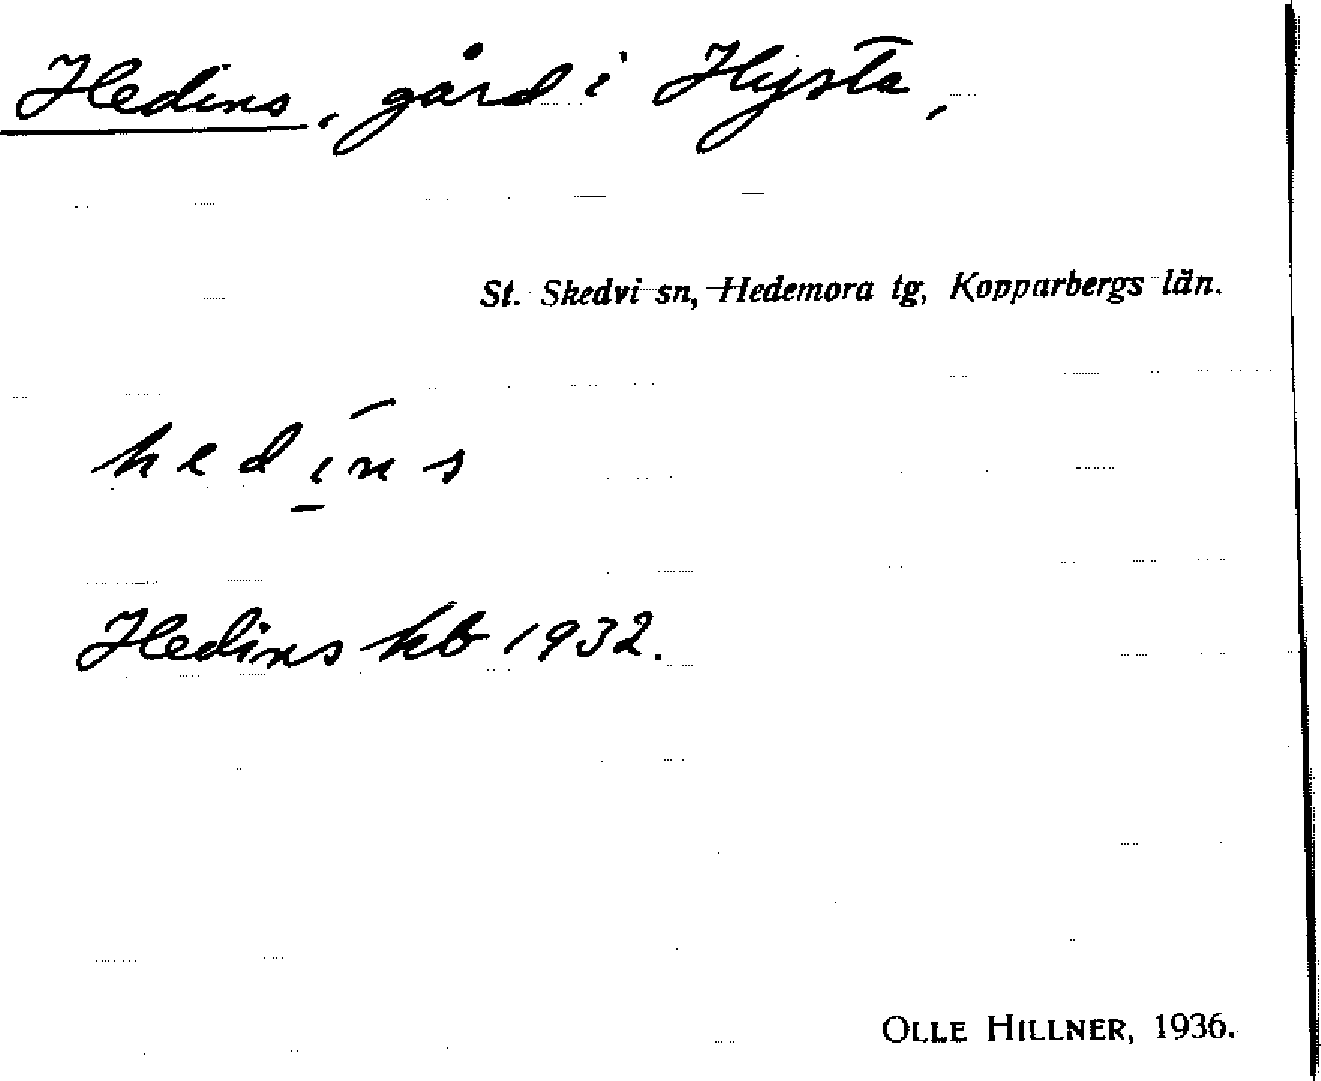 Hedins, gård i Hysta,
St. Skedvi sn, Hedemora tg, Kopparbergs län.
hedins
Hedins kb 1932.
OLLE HILLNER, 1936.